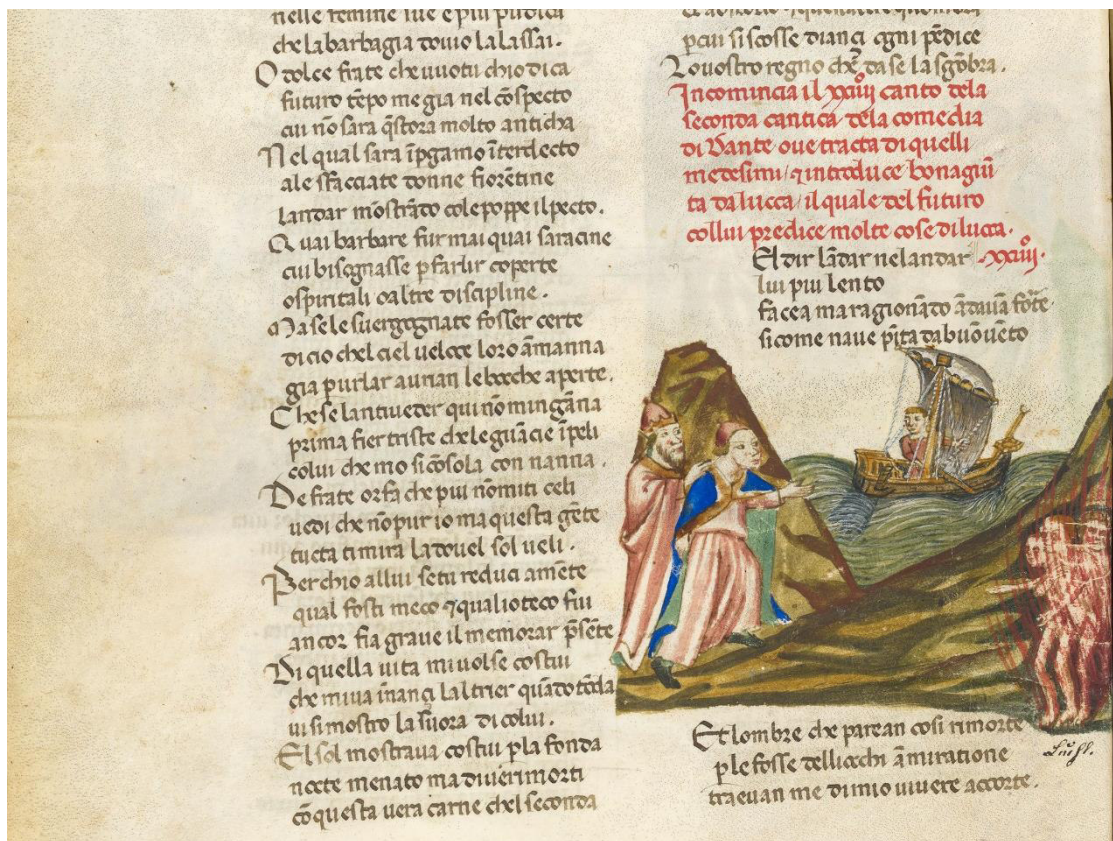 nelle femine sue e piu pudica
che la barbagia douio la lassai.
O dolce frate che uuotu chio dica
futuro tẽpo me gia nel cõspecto
cui nõ sara q̃stora molto anticha
Nel qual sara ĩpgamo ĩterdecto
ale sfacciate donne fiorẽtine
landar mõstrãdo cole poppe il pecto.
Quai barbare fur mai quai saracine
cui bisognasse p farlir coperte
o spiritali o altre discipline.
Ma se le suergognate fosser certe
di cio chel ciel ueloce loro ãmanna
gia p urlar aurian le bocche aperte.
Che se lantiueder qui nõ mingãna
prima fier triste che le guãcie ĩpeli
colui che mo si cõsola con nanna.
De frate or fa che piu nõ mi ti celi
uedi che nõ pur io ma questa gẽte
tucta rimira la douel sol ueli.
Perchio allui se tu reduci amẽte
qual fosti meco ⁊ qual io teco fui
ancor fia graue il memorar p̃sẽte
Di quella uita mi uolse costui
che mi ua ĩnanci laltrier quãdo tõda
ui si mostro la suora di colui.
El sol mostraua costui p la fonda
nocte menato ma di ueri morti
cõ questa uera carne chel seconda
p cui si scosse dianci ogni pẽdice
Lo uostro regno che da se la sgõbra.
Incomincia il xxiiijº canto dela
seconda cantica dela comedia
di Dante oue tracta di quelli
medesimi / ⁊ introduce bonagiũ
ta da lucca / il quale del futuro
collui predice molte cose di lucca.
El dir lãdar ne landar .xxiiijº.
lui piu lento
facea ma ragionãdo ãdauã forte
si come naue pĩta da buõ uẽto
Et lombre che parean cosi rimorte
p le fosse delliocchi ãmiratione
traeuan me di mio uiuere accorte.